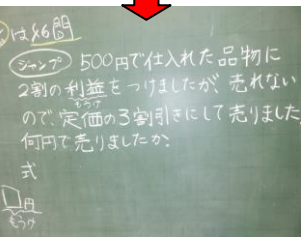 は46問
ジャンプ 500円で仕入れた品物に
2割の利益をつけましたが、売れない
もうけ
ので、定価の3割引きにして売りました。
何円で売りましたか。
式
円
もうけ